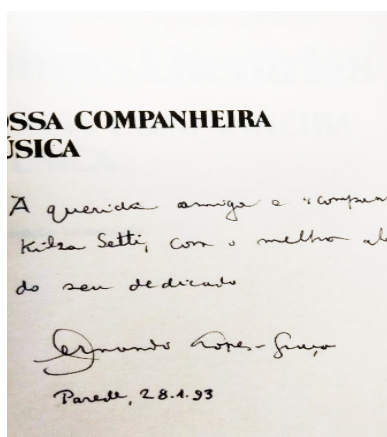 OSSA COMPANHEIRA
ÚSICA
À querida amiga e "compan
Kilza Setti, com o melhor ab
do seu dedicado
Fernando Lopes-Graça
Parede, 28.1.93